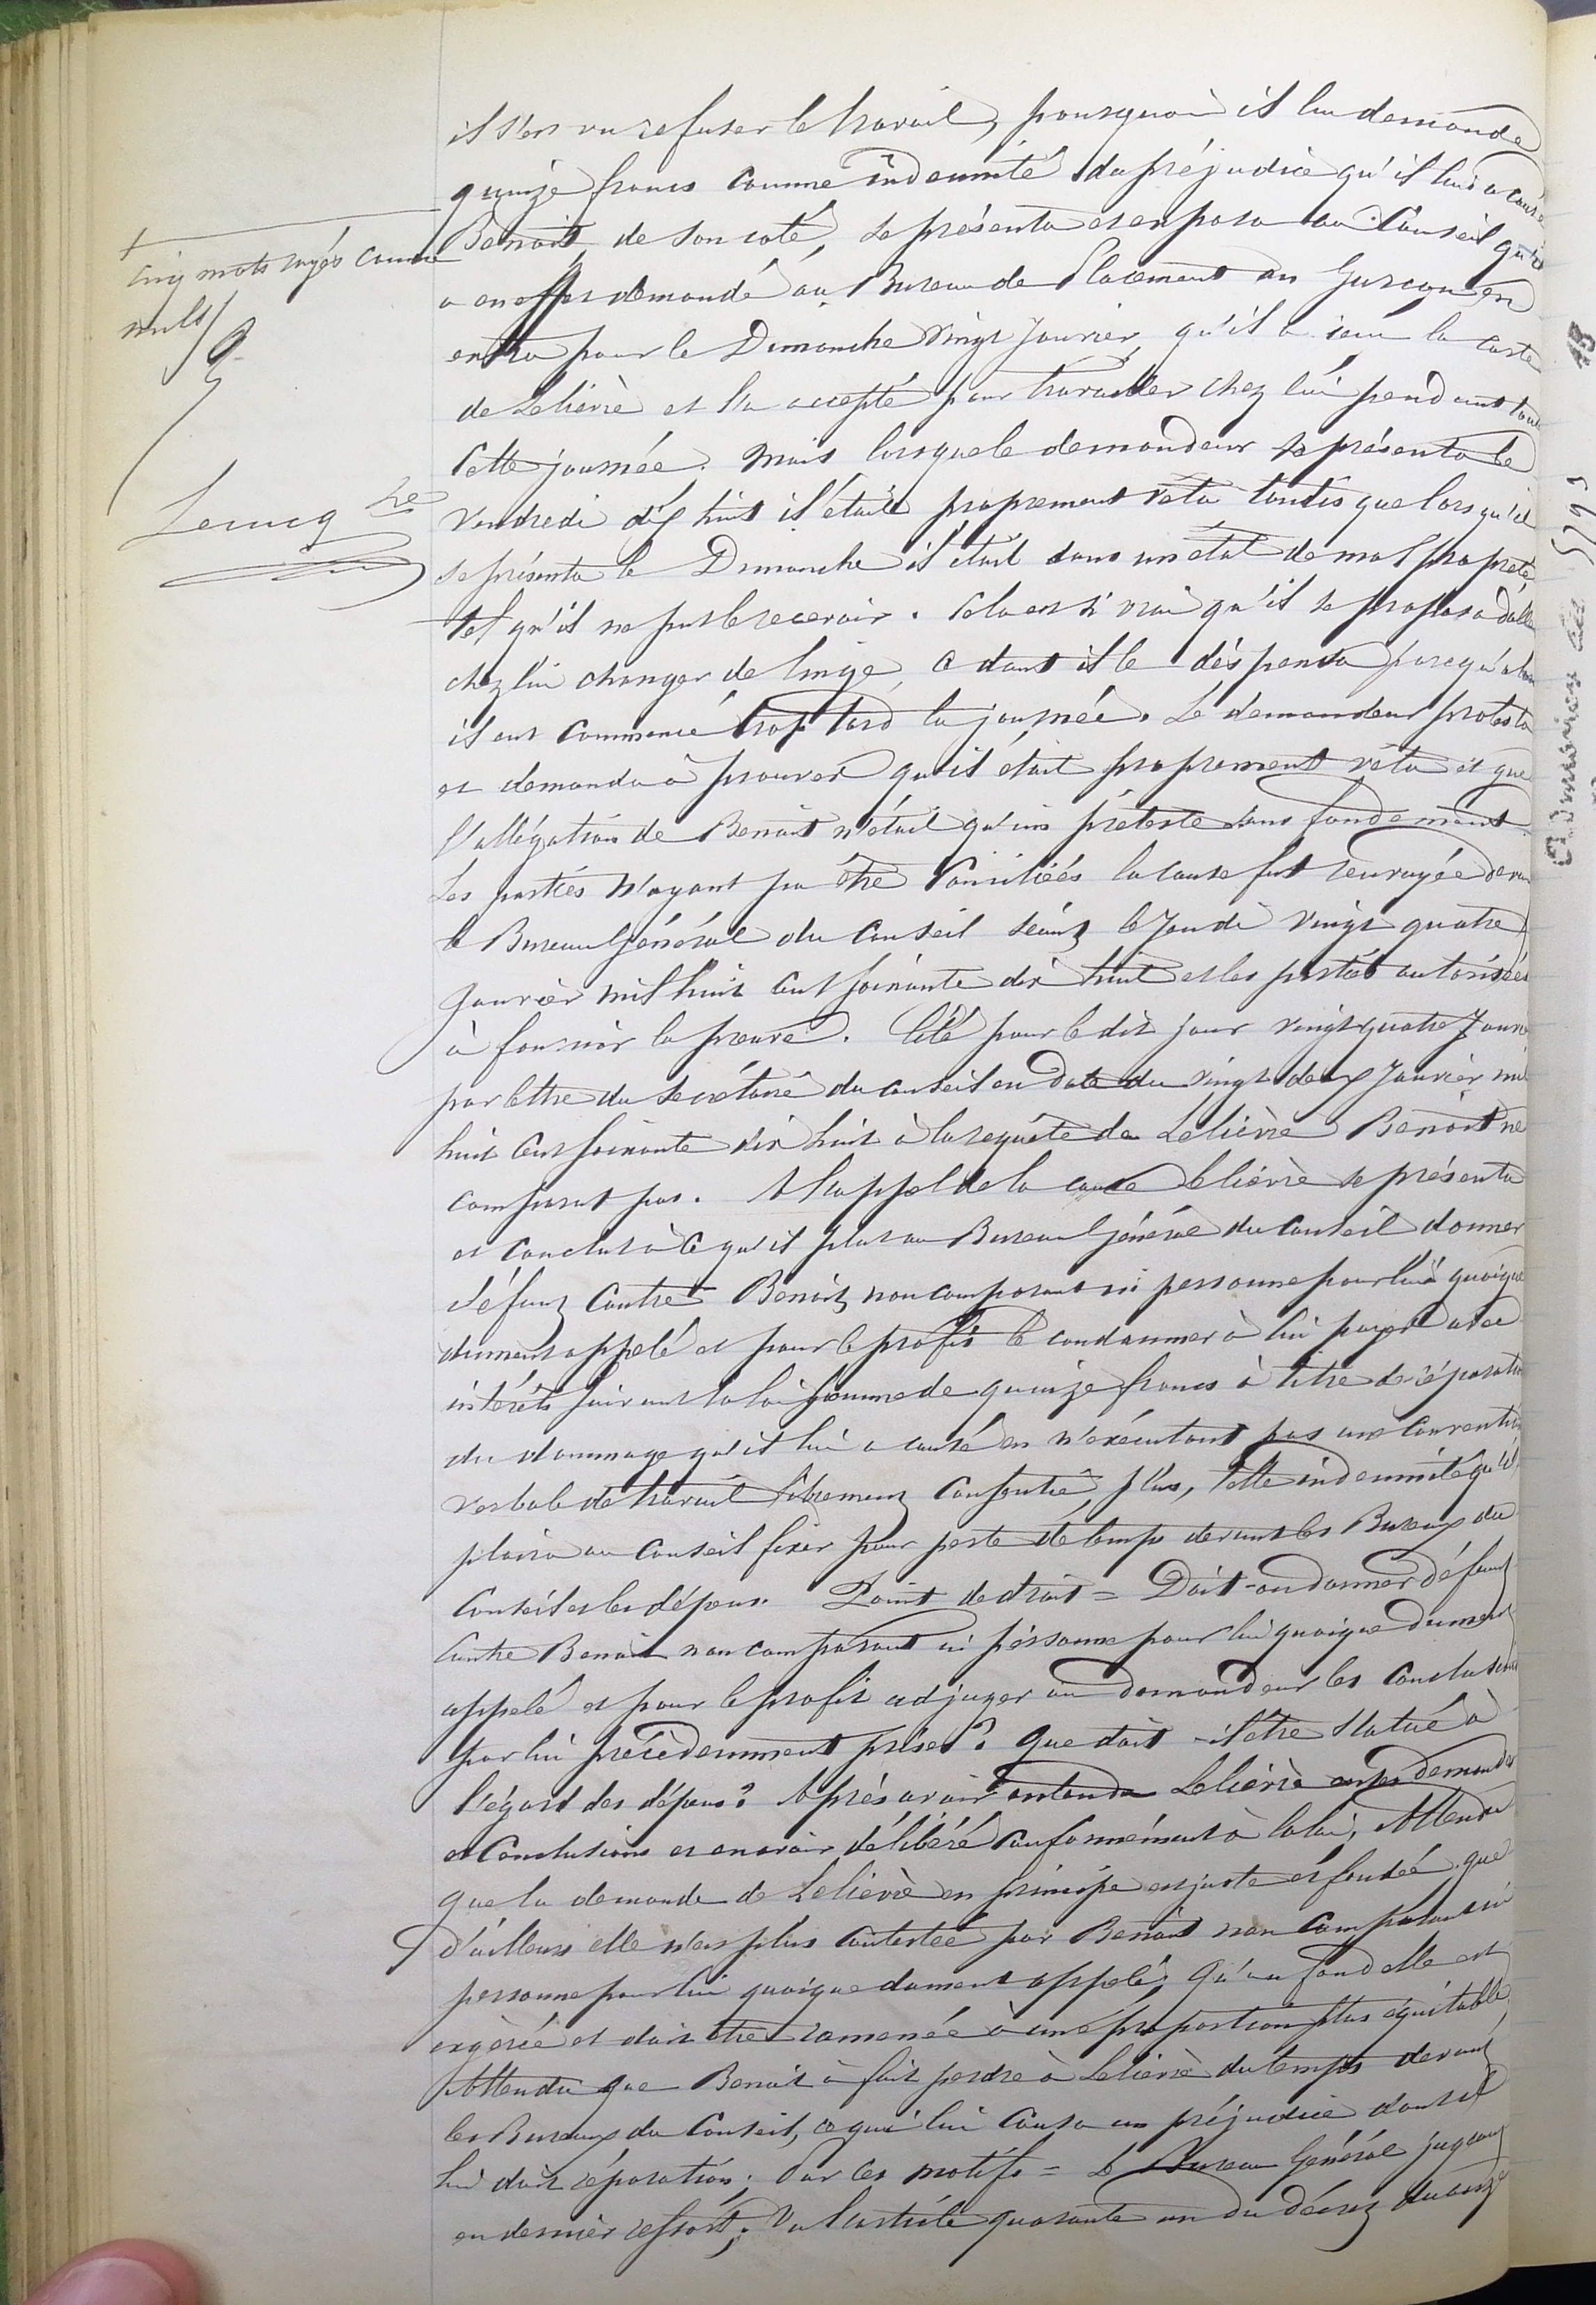 il s'est vu refuser le travail, pourquoi il lui demande
quinze francs comme indemnité du préjudice qu'il lui a causé
Benoit, de son coté, se présenta et exposa au Conseil qu'il
a en effet demandé au Bureau de Placement un Garçon en
extra pour le Dimanche vingt Janvier, qu'il a reçu la carte
de Lelièvre et l'a accepté pour travailler chez lui pendant toute
cette journée. Mais lorsque le demandeur se présenta le
Vendredi dix huit il était proprement vêtu tandis que lorsqu'il
se présenta le Dimanche il était dans un état de malpropreté
tel qu'il ne put le recevoir. Cela est si vrai qu'il se proposa d'aller
chez lui changer de linge, ce dont il le dispensa parcequ'alors
il eut commencé trop tard la journée. Le demandeur protesta
et demanda à prouver qu'il était proprement vêtu et que
l'allégation de Benoit n'était qu'un prétexte sans fondement
Les parties n'ayant pu être conciliées la cause fut renvoyée devant
le Bureau Général du Conseil séant le Jeudi vingt quatre
Janvier mil huit cent soixante dix huit et les parties autorisées
à fournir la preuve. Cité pour le dit jour vingt quatre Janvier
par lettre du secrétaire du conseil en date du vingt deux Janvier mil
huit cent soixante dix huit à la requête de Lelièvre Benoit ne
comparut pas. A l'appel de la cause Lelièvre se présenta
et conclut à ce qu'il plut au Bureau Général du Conseil donner
défaut contre Benoit, non comparant ni personne pour lui quoique
dument appelé et pour le profit le condamner à lui payer avec
intérêts suivant la loi somme de quinze francs à titre de réparation
du dommage qu'il lui a causé en n'exécutant pas une convention
verbale de travail librement consentie, plus, telle indemnité qu'il
plaira au Conseil fixer pour perte de temps devant les Bureaux du
Conseil et les dépens. Point de droit = Doit-on donner défaut
contre Benoit non comparant ni personne pour lui quoique dument
appelé et pour le profit adjuger au demandeur les conclusions
par lui précédemment prises? Que doit-il être statué à
l'égard des dépens? Après avoir entendu Lelièvre en ses demandes
et Conclusions et en avoir délibéré conformément à la loi; Attendu
que la demande de Lelièvre en principe est juste et fondée, que
d'ailleurs elle n'est plus contestée par Benoit non comparant ni
personne pour lui quoique dument appelé; Qu'au fond elle est
exgérée et doit être ramenée à une proportion plus équitable,
Attendu que Benoit a fait perdre à Lelièvre du temps devant
les Bureaux du Conseil, ce qui lui causa un préjudice dont il
lui doit réparation; Par ces motifs = Le Bureau Général jugeant
en dernier ressort; Vu l'article quarante un du décret du onze
+
Cinq mots rayés comme
nuls/
Lecucq